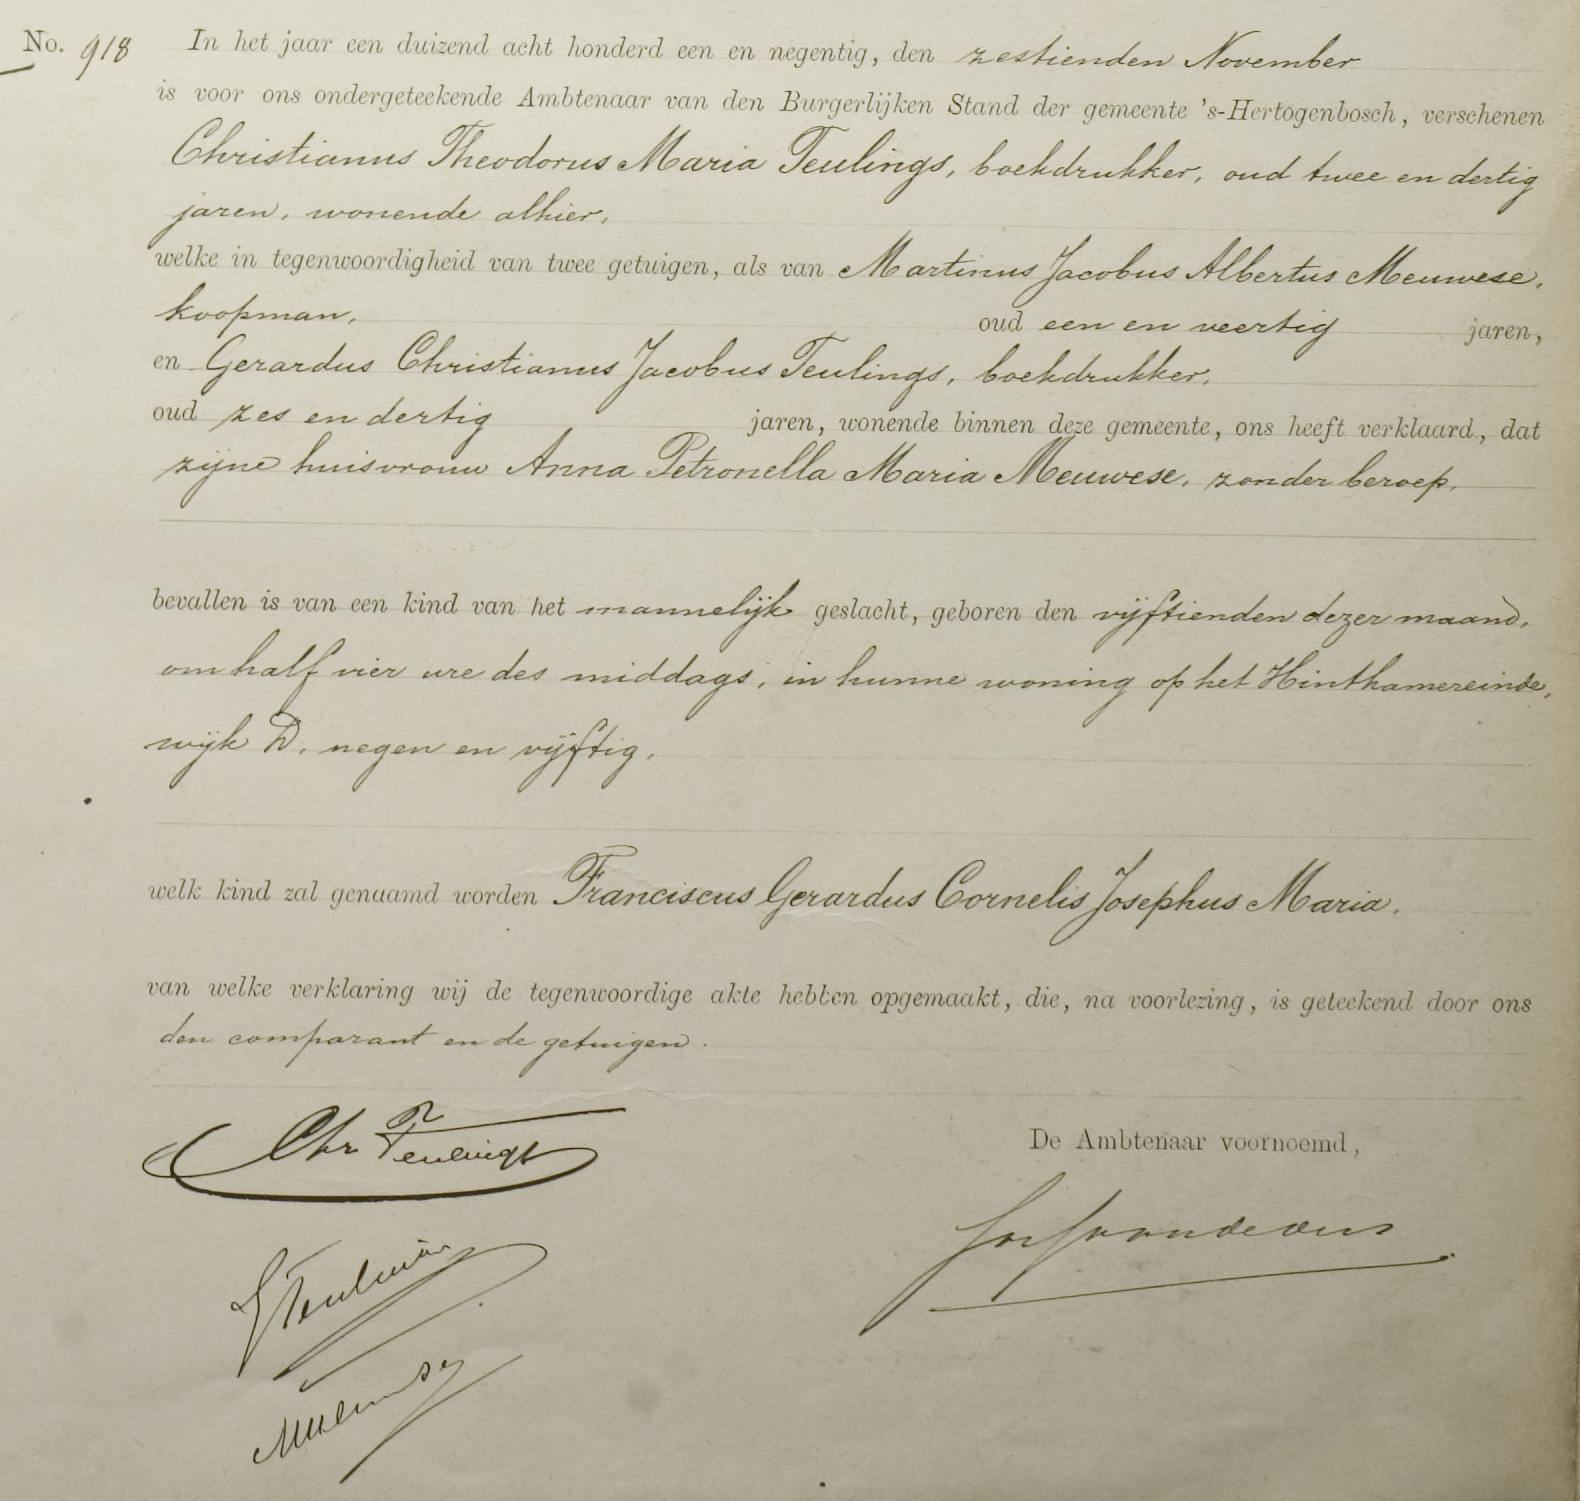 No. 918 In het jaar een duizend acht honderd een en negentig, den zestienden November
is voor ons ondergeteekende Ambtenaar van den Burgerlijken Stand der gemeente 's-Hertogenbosch, verschenen
Christianus Theodorus Maria Teulings, boekdrukker, oud twee en dertig
jaren, wonende alhier,
welke in tegenwoordigheid van twee getuigen, als van Martinus Jacobus Albertus Meuwese,
koopman, oud een en veertig jaren,
en Gerardus Christianus Jacobus Teulings, boekdrukker,
oud zes en dertig jaren, wonende binnen deze gemeente, ons heeft verklaard, dat
zijne huisvrouw Anna Petronella Maria Meuwese, zonder beroep,
bevallen is van een kind van het mannelijk geslacht, geboren den vijftienden dezer maand,
om half vier ure des middags, in hunne woning op het Hinthamereinde,
wijk D, negen en vijftig,
welk kind zal genaamd worden Franciscus Gerardus Cornelis Josephus Maria.
van welke verklaring wij de tegenwoordige akte hebben opgemaakt, die, na voorlezing, is geteekend door ons
den comparant en de getuigen.
Chr Teulings
De Ambtenaar voornoemd,
G Teulings